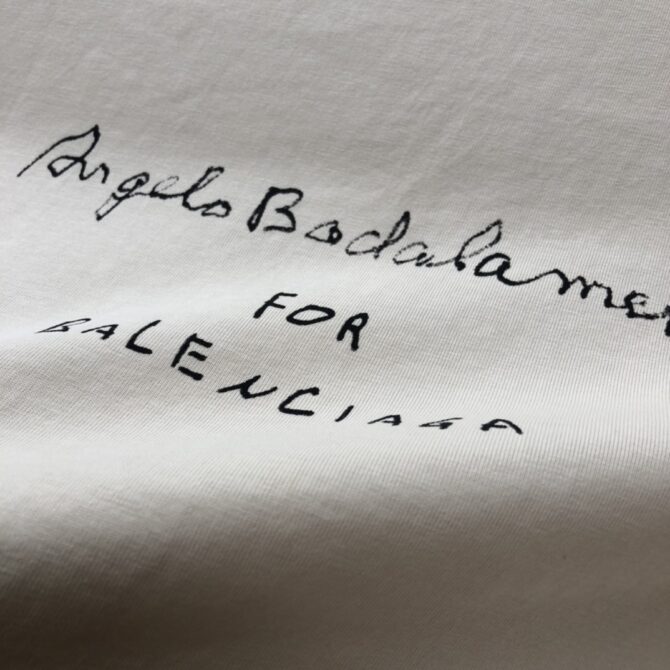 Angelo Badalamen
FOR
BALENCIAGA